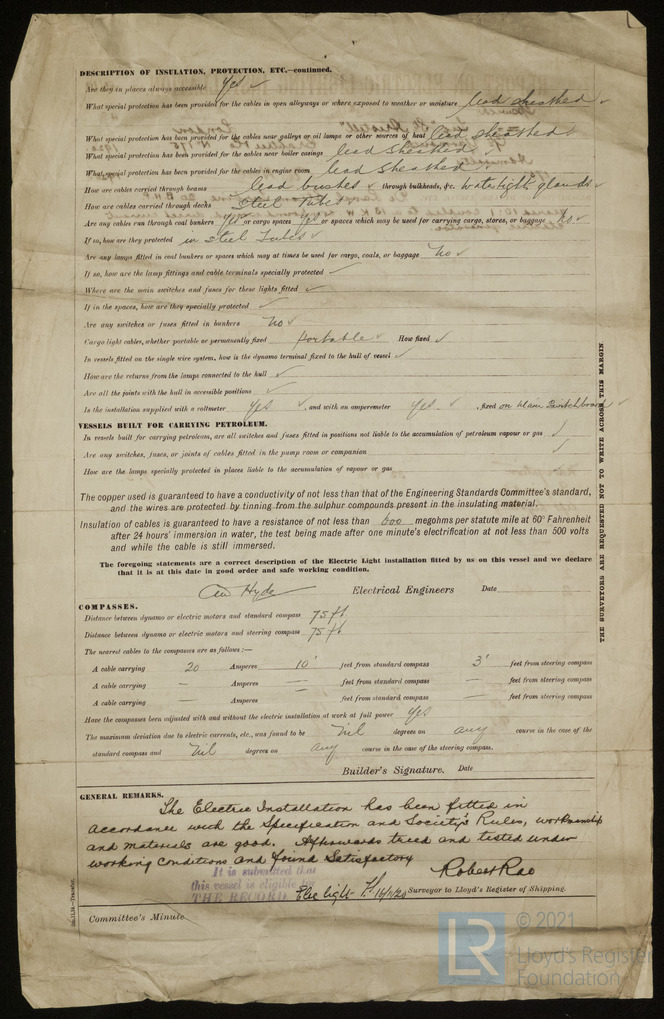 DESCRIPTION OF INSULATION, PROTECTION, ETC.—continued.
Are they in places always accessible Yes ✓
What special protection has been provided for the cables in open alleyways or where exposed to weather or moisture lead sheathed ✓
What special protection has been provided for the cables near galleys or oil lamps or other sources of heat lead sheathed
What special protection has been provided for the cables near boiler casings lead sheathed ✓
What special protection has been provided for the cables in engine room lead sheathed ✓
How are cables carried through beams lead bushes ✓ through bulkheads, &c. watertight glands ✓
How are cables carried through decks Steel Tubes
Are any cables run through coal bunkers Yes or cargo spaces Yes or spaces which may be used for carrying cargo, stores, or baggage No ✓
If so, how are they protected in Steel Tubes ✓
Are any lamps fitted in coal bunkers or spaces which may at times be used for cargo, coals, or baggage No ✓
If so, how are the lamp fittings and cable terminals specially protected ✓
Where are the main switches and fuses for these lights fitted ✓
If in the spaces, how are they specially protected ✓
Are any switches or fuses fitted in bunkers No ✓
Cargo light cables, whether portable or permanently fixed Portable ✓ How fixed ✓
In vessels fitted on the single wire system, how is the dynamo terminal fixed to the hull of vessel ✓
How are the returns from the lamps connected to the hull ✓
Are all the joints with the hull in accessible positions ✓
Is the installation supplied with a voltmeter Yes ✓, and with an amperemeter Yes ✓, fixed on Main Switchboard ✓
VESSELS BUILT FOR CARRYING PETROLEUM.
In vessels built for carrying petroleum, are all switches and fuses fitted in positions not liable to the accumulation of petroleum vapour or gas ✓
Are any switches, fuses, or joints of cables fitted in the pump room or companion ✓
How are the lamps specially protected in places liable to the accumulation of vapour or gas ✓
The copper used is guaranteed to have a conductivity of not less than that of the Engineering Standards Committee's standard,
and the wires are protected by tinning from the sulphur compounds present in the insulating material.
Insulation of cables is guaranteed to have a resistance of not less than 600 megohms per statute mile at 60° Fahrenheit
after 24 hours' immersion in water, the test being made after one minute's electrification at not less than 500 volts
and while the cable is still immersed.
The foregoing statements are a correct description of the Electric Light installation fitted by us on this vessel and we declare
that it is at this date in good order and safe working condition.
Hyde Electrical Engineers Date
COMPASSES.
Distance between dynamo or electric motors and standard compass 75 ft
Distance between dynamo or electric motors and steering compass 75 ft
The nearest cables to the compasses are as follows:—
A cable carrying 20 Amperes 10' feet from standard compass 3' feet from steering compass
A cable carrying — Amperes — feet from standard compass — feet from steering compass
A cable carrying — Amperes — feet from standard compass — feet from steering compass
Have the compasses been adjusted with and without the electric installation at work at full power Yes
The maximum deviation due to electric currents, etc., was found to be Nil degrees on any course in the case of the
standard compass and Nil degrees on any course in the case of the steering compass.
Builder's Signature. Date
GENERAL REMARKS.
The Electric Installation has been fitted in
accordance with the Specification and Society's Rules, workmanship
and materials are good. Afterwards tried and tested under
working conditions and found Satisfactory
It is submitted that
this vessel is eligible
THE RECORD. Elec light 16/1/20
Robert Rae
Surveyor to Lloyd's Register of Shipping.
Committee's Minute
THE SURVEYORS ARE REQUESTED NOT TO WRITE ACROSS THIS MARGIN
LR
© 2021
Lloyd's Register
Foundation